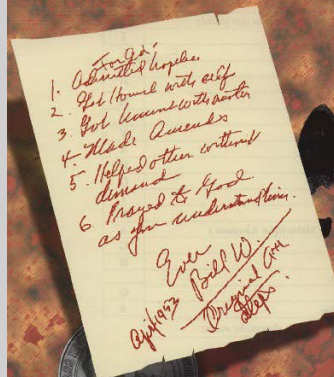 For Ed:
1. Admitted hopeless
2. Got honest with self
3. Got honest with another
4. Made amends
5. Helped other without
demand
6. Prayed to God
as you understand him.
Ever
Bill W.
April/1953
Original AA
steps.